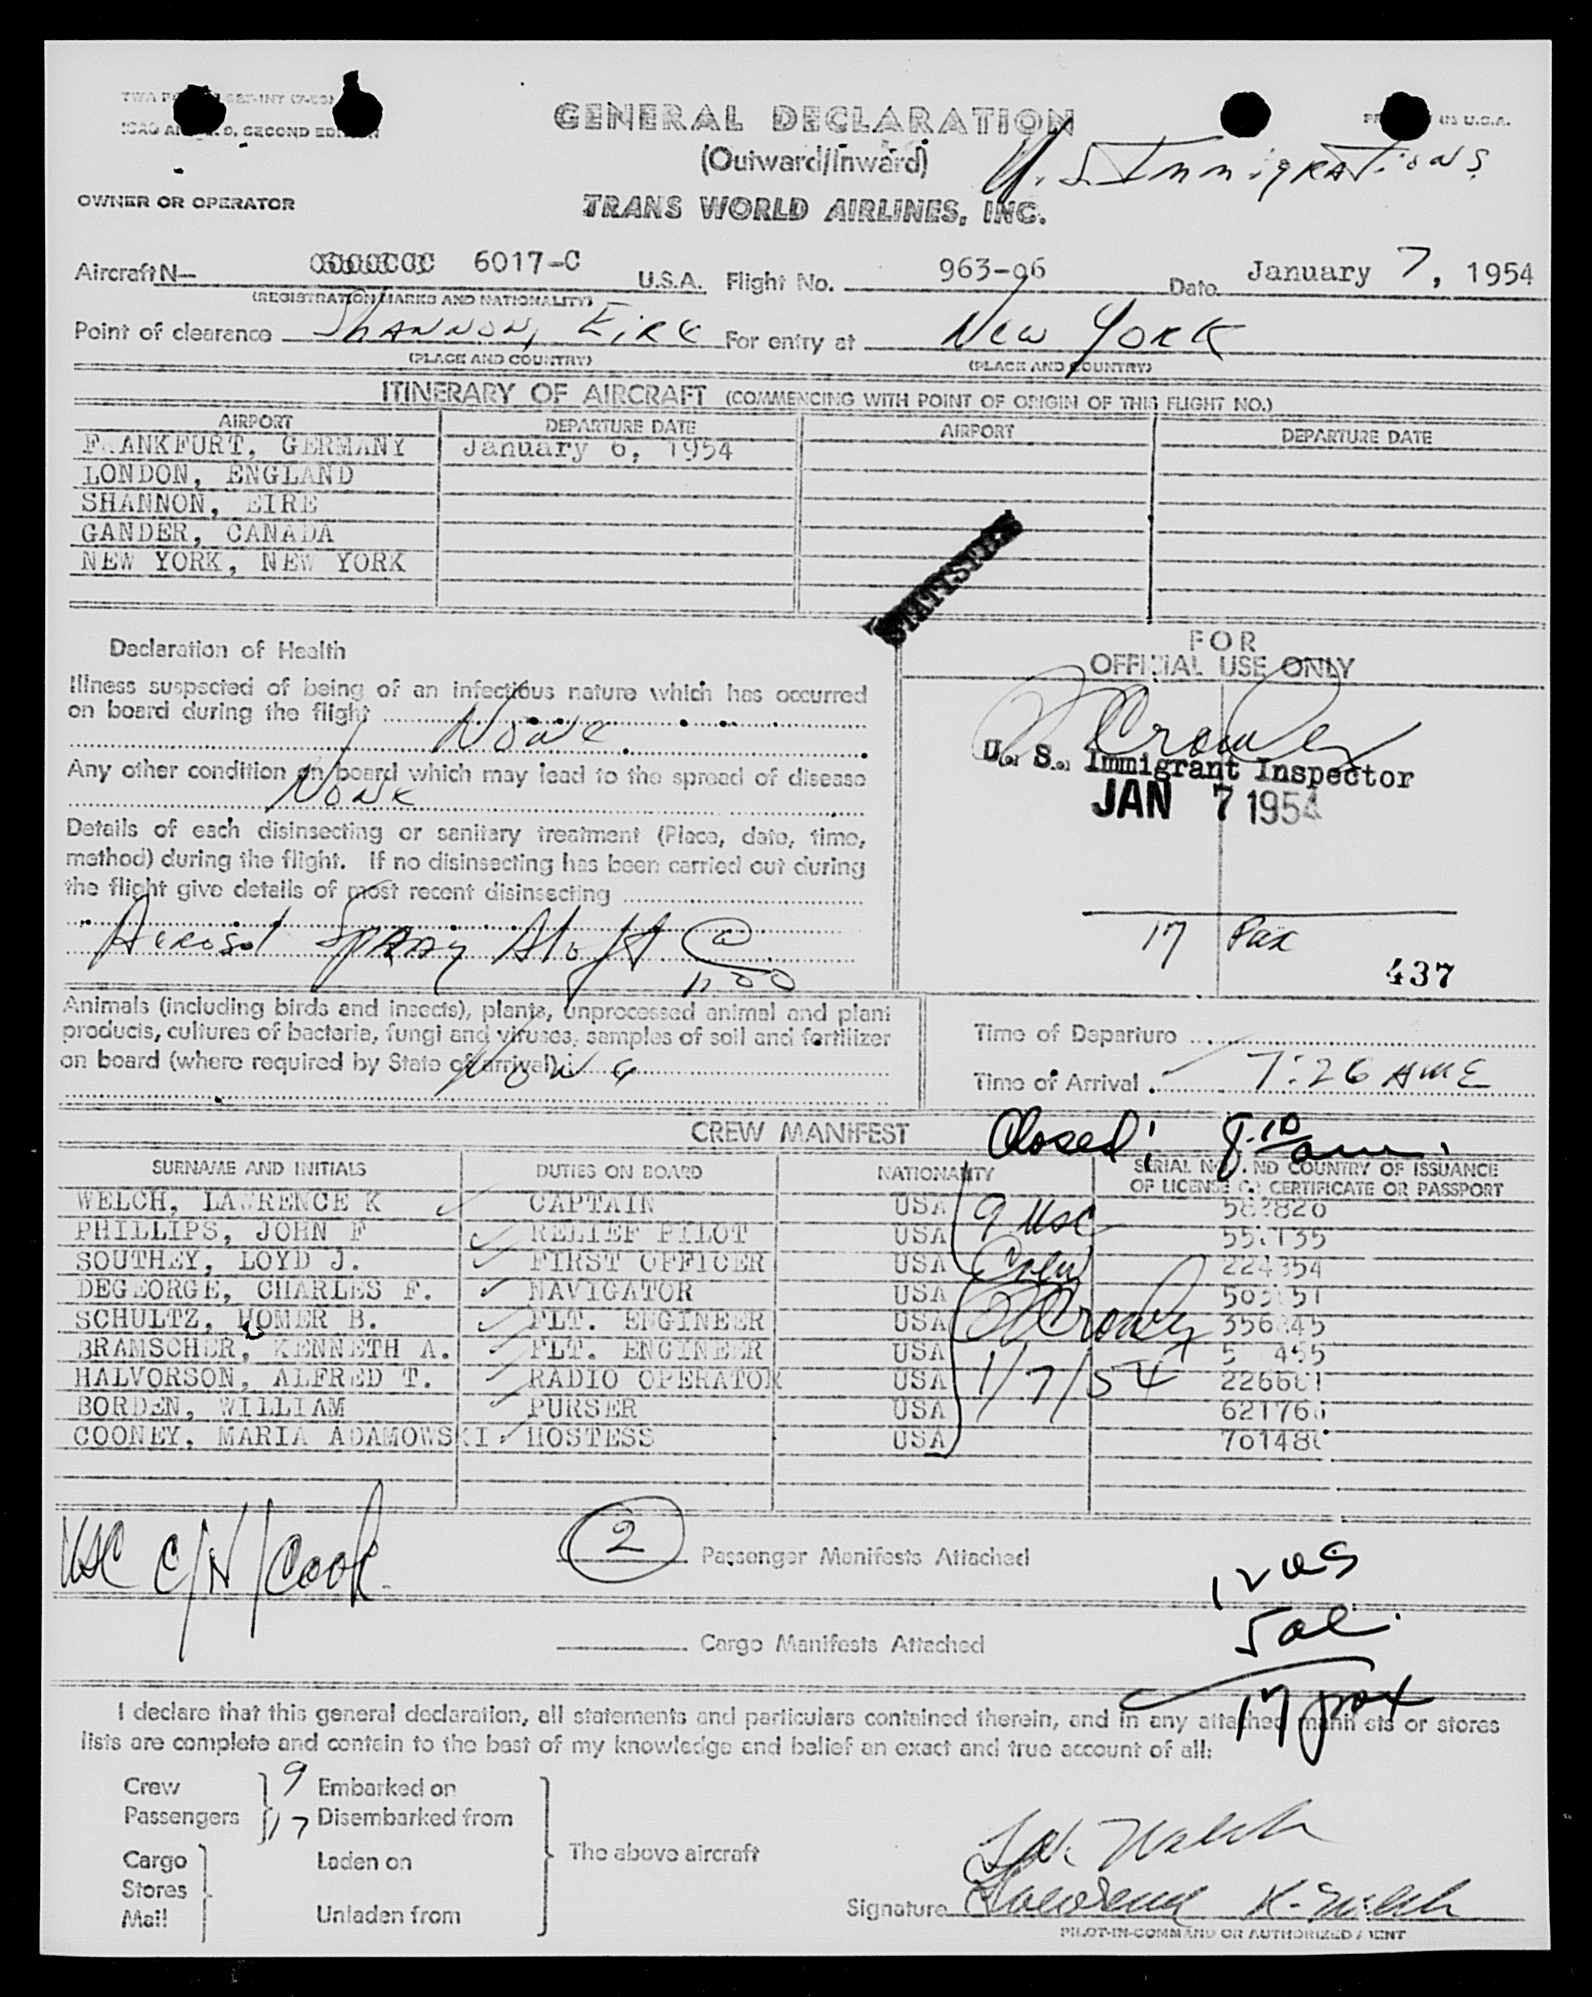 GENERAL DECLARATION
(Outward/Inward)
U.S. Immigrations
OWNER OR OPERATOR
TRANS WORLD AIRLINES, INC.
Aircraft N— 6017-C U.S.A. Flight No. 963-06 Date January 7, 1954
(REGISTRATION MARKS AND NATIONALITY)
Point of clearance Shannon, Eire For entry at New York
(PLACE AND COUNTRY) (PLACE AND COUNTRY)
ITINERARY OF AIRCRAFT (COMMENCING WITH POINT OF ORIGIN OF THIS FLIGHT NO.)
AIRPORT DEPARTURE DATE AIRPORT DEPARTURE DATE
FRANKFURT, GERMANY January 6, 1954
LONDON, ENGLAND
SHANNON, EIRE
GANDER, CANADA
NEW YORK, NEW YORK
STATISTICS
Declaration of Health
FOR
OFFICIAL USE ONLY
Illness suspected of being of an infectious nature which has occurred
on board during the flight
None
Crowley
U. S. Immigrant Inspector
JAN 7 1954
Any other condition on board which may lead to the spread of disease
None
Details of each disinsecting or sanitary treatment (Place, date, time,
method) during the flight. If no disinsecting has been carried out during
the flight give details of most recent disinsecting
Aerosol Spray Aloft @
1200
17 Pax
437
Animals (including birds and insects), plants, unprocessed animal and plant
products, cultures of bacteria, fungi and viruses, samples of soil and fertilizer
on board (where required by State of arrival): None
Time of Departure
Time of Arrival 7:26 AME
CREW MANIFEST
Closed: 8:10 am.
SURNAME AND INITIALS DUTIES ON BOARD NATIONALITY SERIAL NO. AND COUNTRY OF ISSUANCE
OF LICENSE OR CERTIFICATE OR PASSPORT
WELCH, LAWRENCE K CAPTAIN USA
PHILLIPS, JOHN F RELIEF PILOT USA
SOUTHEY, LOYD J. FIRST OFFICER USA
DEGEORGE, CHARLES F. NAVIGATOR USA
SCHULTZ, HOMER B. FLT. ENGINEER USA
BRAMSCHER, KENNETH A. FLT. ENGINEER USA
HALVORSON, ALFRED T. RADIO OPERATOR USA
BORDEN, WILLIAM PURSER USA
COONEY, MARIA ADAMOWSKI HOSTESS USA
9 USC
Crew
Crowley
1/7/54
USC C/N/Cook
2 Passenger Manifests Attached
12 US
5 al.
17 pax
Cargo Manifests Attached
I declare that this general declaration, all statements and particulars contained therein, and in any attached manifests or stores
lists are complete and contain to the best of my knowledge and belief an exact and true account of all:
Crew 9 Embarked on
Passengers 17 Disembarked from
Cargo Laden on
Stores
Mail Unladen from
The above aircraft
L.K. Welch
Signature Lawrence K. Welch
PILOT-IN-COMMAND OR AUTHORIZED AGENT